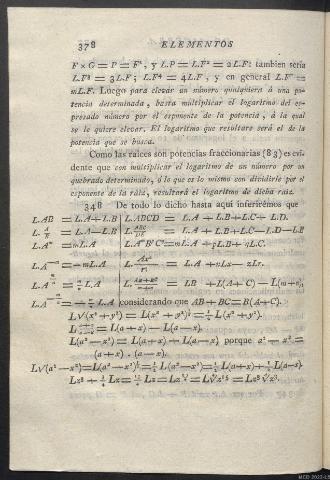 378 ELEMENTOS
F × G = P = F², y L.P = L.F² = 2L.F: tambien sería
L.F³ = 3L.F; L.F⁴ = 4L.F, y en general L.Fᵐ =
mL.F. Luego para elevar un número qualquiera á una po-
tencia determinada, basta multiplicar el logaritmo del ex-
presado número por el esponente de la potencia, á la qual
se le quiere elevar. El logaritmo que resultare será el de la
potencia que se busca.
Como las raices son potencias fraccionarias (83) es evi-
dente que con multiplicar el logaritmo de un número por un
quebrado determinado, ó lo que es lo mismo con dividirle por el
esponente de la raiz, resultará el logaritmo de dicha raiz.
348 De todo lo dicho hasta aquí inferirémos que
L.AB = L.A + L.B L.ABCD = L.A + L.B + L.C + L.D.
L. A/B = L.A − L.B
L.Aᵐ = m L.A
L.A⁻ᵐ = −m L.A
considerando que AB + BC = B(A + C).
L√(x² + y²) = L(x² + y²)^½ = ½ L(x² + y²).
= L(a + x) − L(a − x).
L(a² − x²) = L(a + x) + L(a − x) porque a² − x² =
(a + x) . (a − x).
L√(a² − x²) = L(a² − x²)^½ = ½ L(a² − x²) = ½ L(a + x) + ½ L(a − x)